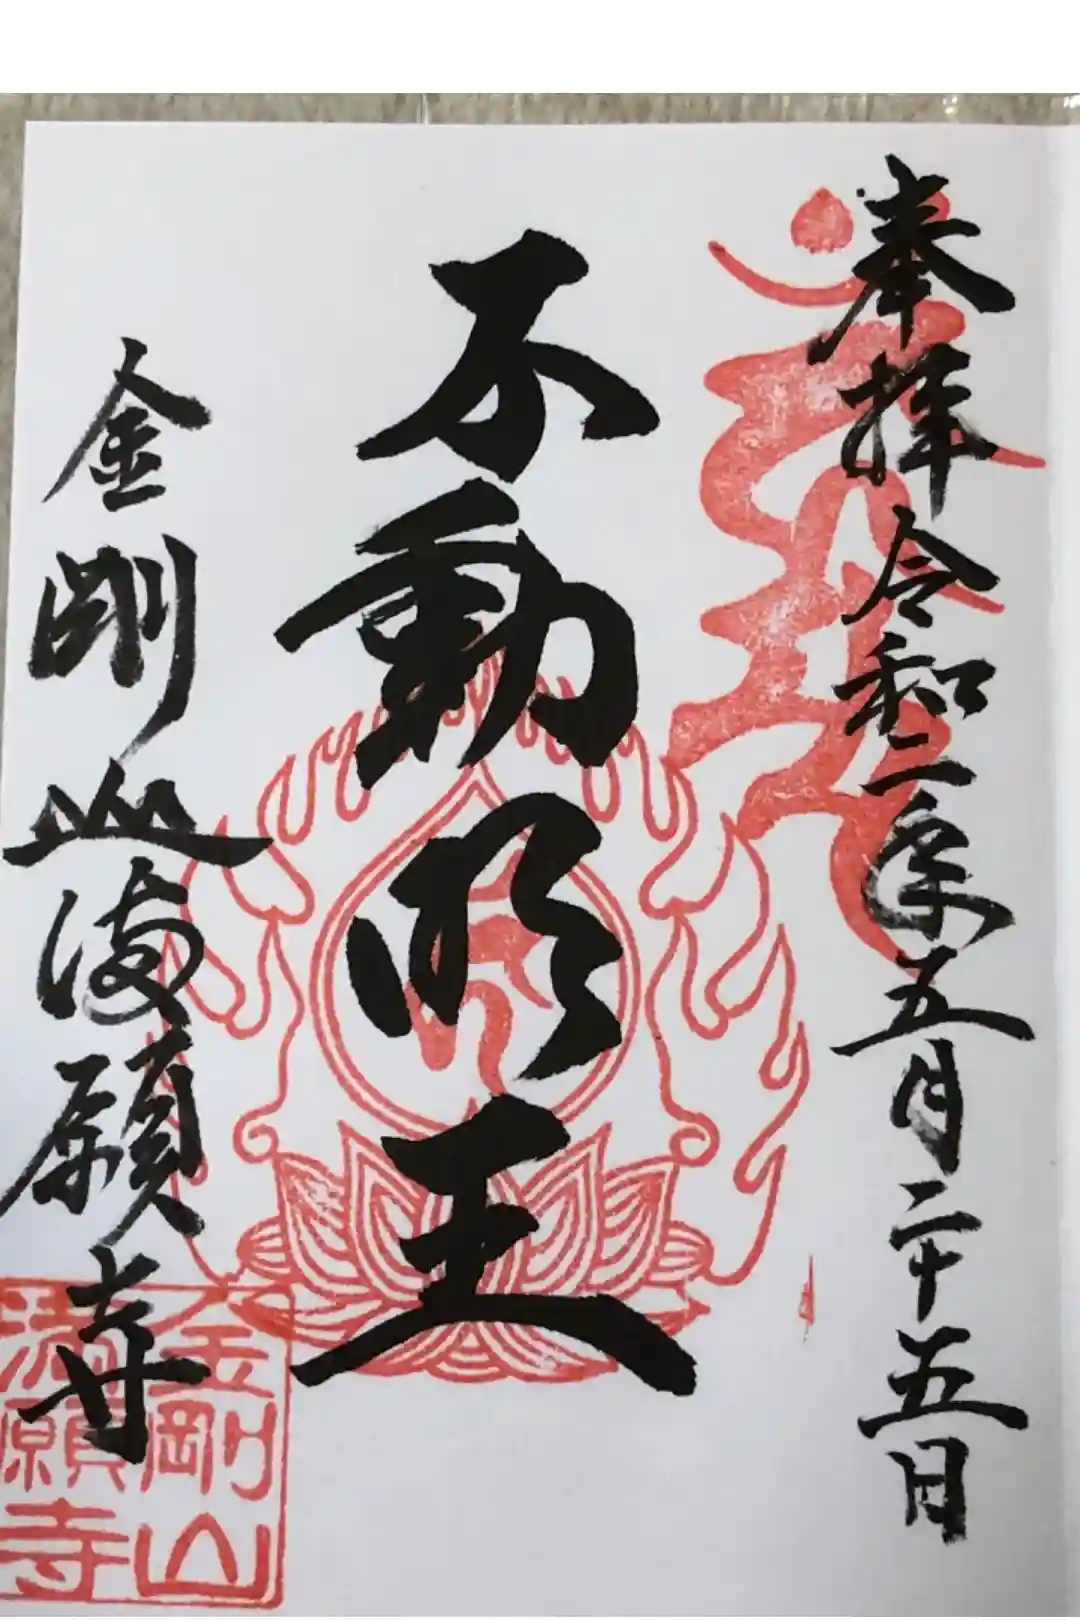 奉拝 令和二年五月二十五日
不動明王
金剛山 満願寺
金剛山
満願寺